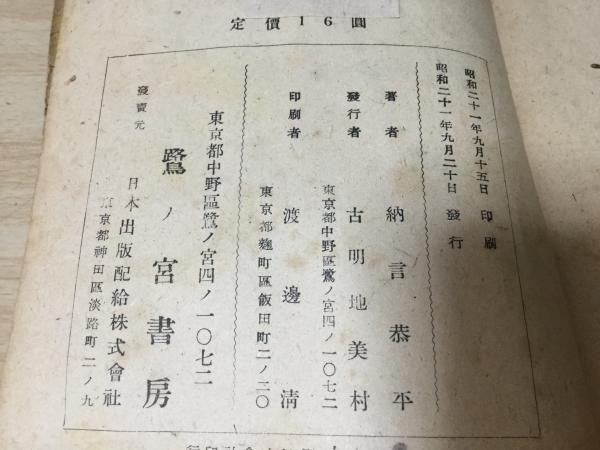 定價16圓
昭和二十一年九月十五日 印刷
昭和二十一年九月二十日 發行
著者 納言恭平
發行者 古明地美村
東京都中野區鷺ノ宮四ノ一〇七二
印刷者 渡邊淸
東京都麴町區飯田町二ノ二〇
東京都中野區鷺ノ宮四ノ一〇七二
發賣元 鷺ノ宮書房
日本出版配給株式會社
東京都神田區淡路町二ノ九